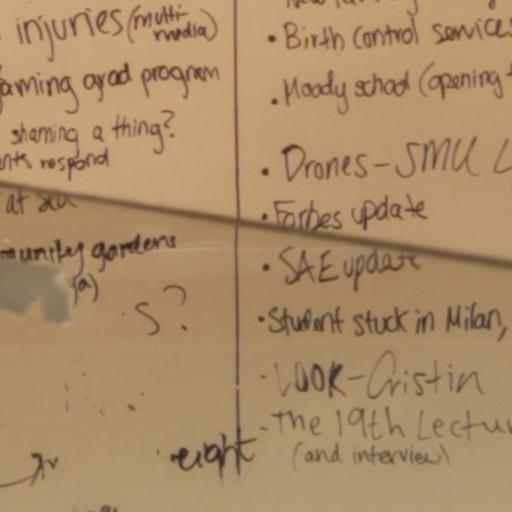 injuries (multi-
media)
gaming grad program
shaming a thing?
respond
at
gardens
(a)
S?
eight
• Birth Control services
• Moody school (opening
• Drones - SMU
• Forbes update
• SAE update
• Student stuck in Milan,
- LOOK - Cristin
- The 19th Lectur
(and interview)